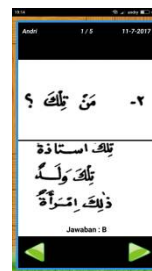 19:14
Andri 1 / 5 11-7-2017
٢- مَنْ تِلْكَ ؟
تِلْكَ اسـتاذة
تِلْكَ وَلَـدٌ
ذٰلِكَ اِمْرَأَةٌ
Jawaban : B